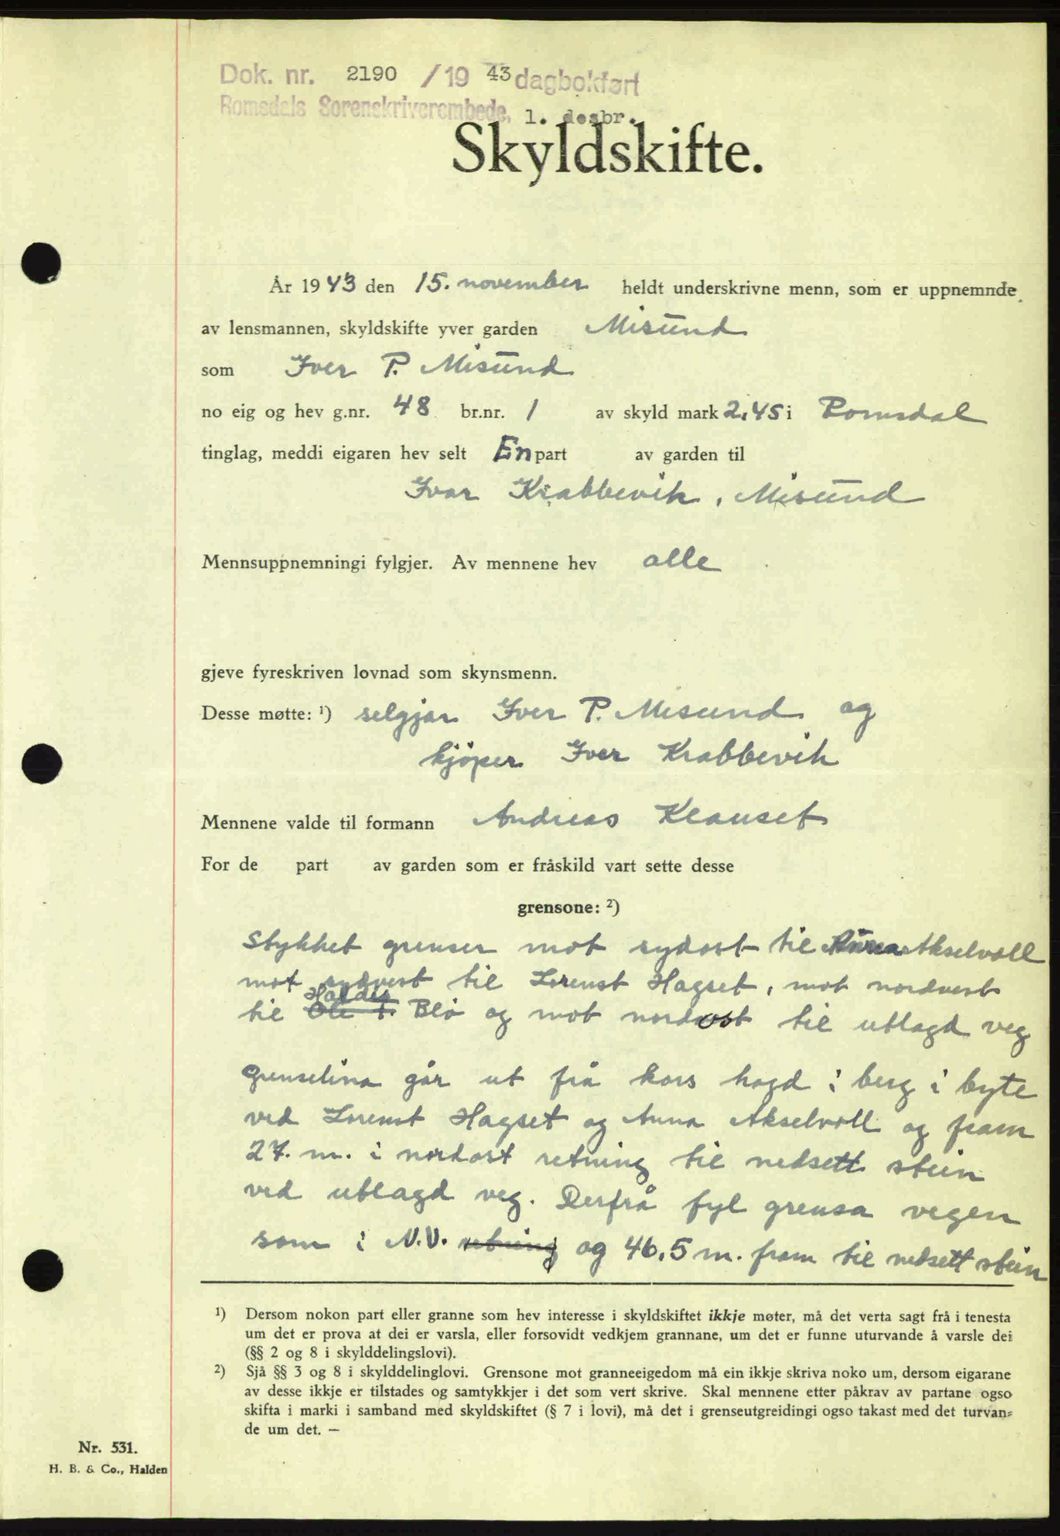 Dok. nr. 2190 /19 43 dagbokført
Romsdals Sorenskriverembede, 1. desbr.
Skyldskifte.
År 1943 den 15. november heldt underskrivne menn, som er uppnemnde
av lensmannen, skyldskifte yver garden Misund
som Iver P. Misund
no eig og hev g.nr. 48 br.nr. 1 av skyld mark 2,45 i Romsdal
tinglag, meddi eigaren hev selt En part av garden til
Ivar Krabbevik, Misund
Mennsuppnemningi fylgjer. Av mennene hev alle
gjeve fyreskriven lovnad som skynsmenn.
Desse møtte: ¹) selgjar Iver P. Misund og
kjöper Iver Krabbevik
Mennene valde til formann Andreas Klauset
For de part av garden som er fråskild vart sette desse
grensone: ²)
Stykket grenser mot sydost til Anna Akselvoll
mot sydvest til Lorenst Hagset, mot nordvest
til Haldis Blö og mot nordost til utlagd veg
Grenselina går ut frå kors hogd i berg i byte
ved Lorenst Hagset og Anna Akselvoll og fram
27. m. i nordost retning til nedsett stein
ved utlagd veg. Derfrå fyl grensa vegen
som i N.V. retning og 46,5 m. fram til nedsett stein
¹) Dersom nokon part eller granne som hev interesse i skyldskiftet ikkje møter, må det verta sagt frå i tenesta
um det er prova at dei er varsla, eller forsovidt vedkjem grannane, um det er funne uturvande å varsle dei
(§§ 2 og 8 i skylddelingslovi).
²) Sjå §§ 3 og 8 i skylddelinglovi. Grensone mot granneeigedom må ein ikkje skriva noko um, dersom eigarane
av desse ikkje er tilstades og samtykkjer i det som vert skrive. Skal mennene etter påkrav av partane ogso
skifta i marki i samband med skyldskiftet (§ 7 i lovi), må det i grenseutgreidingi ogso takast med det turvan-
de um det. —
Nr. 531.
H. B. & Co., Halden